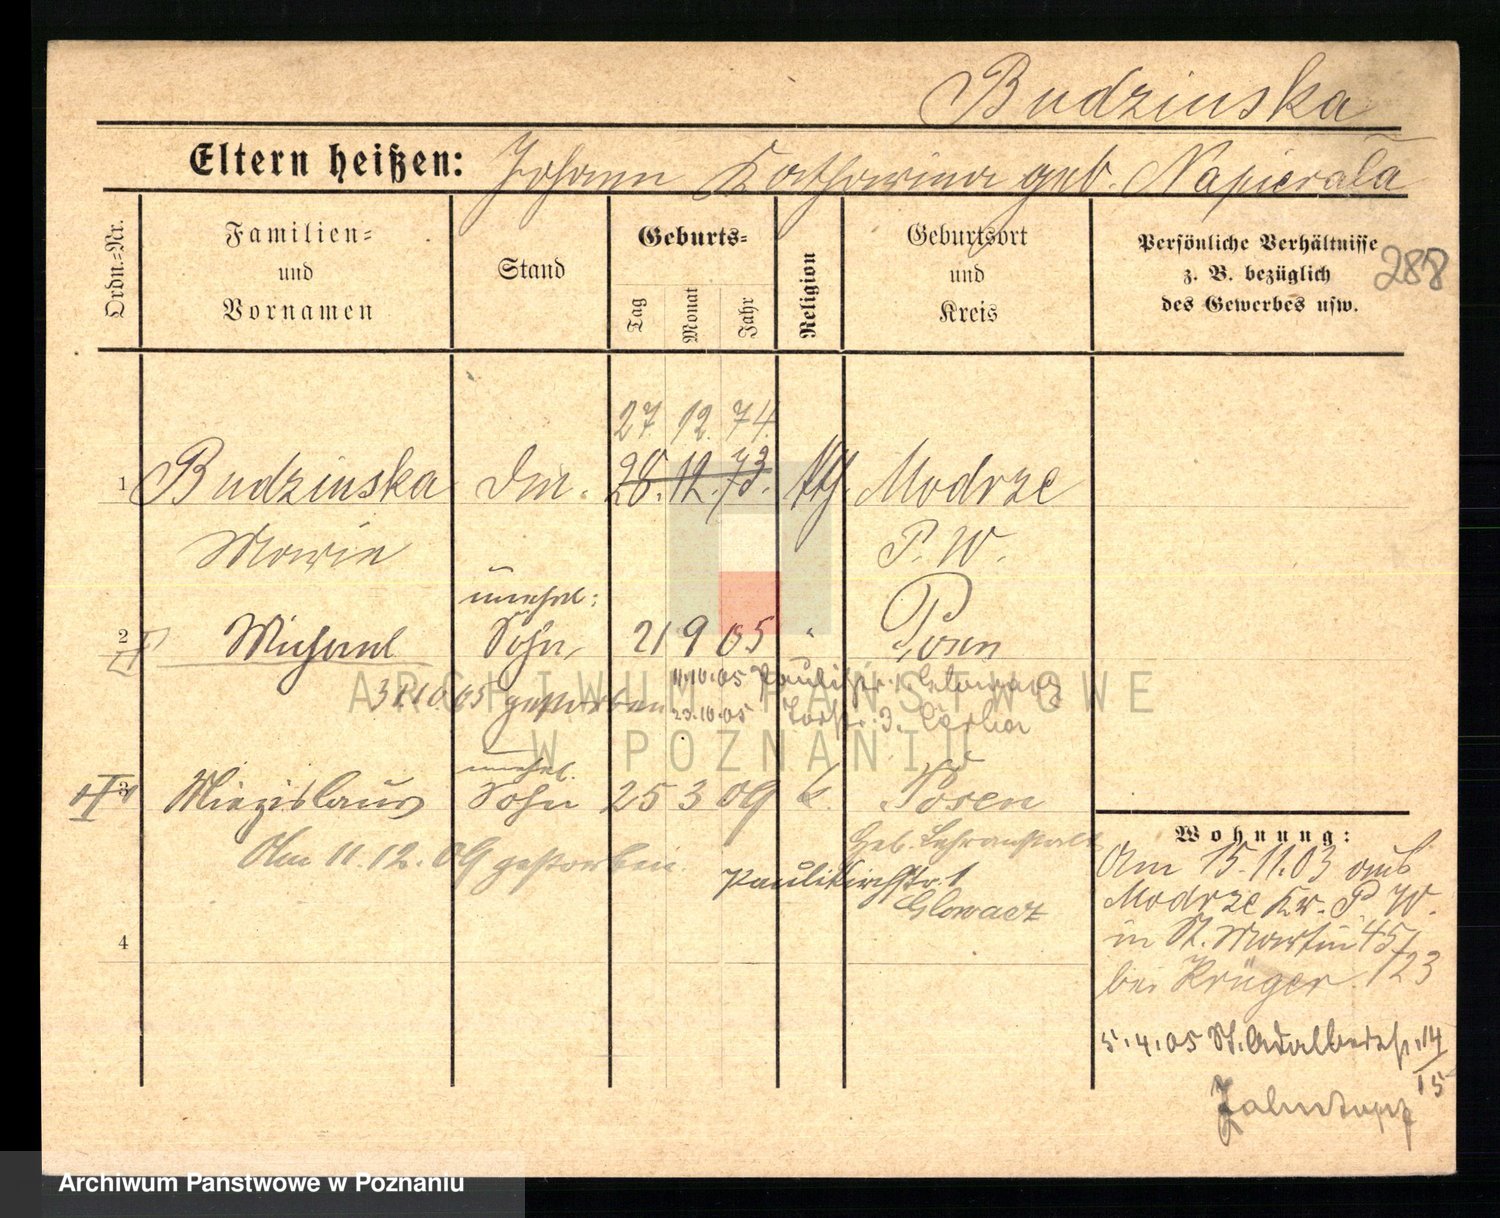 Budzinska
Eltern heißen: Johann Katharina geb. Napierała
Ordn.=Nr.
Familien=
und
Vornamen
Stand
Geburts=
Tag
Monat
Jahr
Religion
Geburtsort
und
Kreis
Persönliche Verhältnisse
z. B. bezüglich
des Gewerbes usw.
288
27. 12. 74.
1 Budzinska 28. 12. 73. kth. Modrze
Marie P. W.
unehel:
2 Michael Sohn 21 9 05 " Posen
31.10.05 gestorben
11.10.05
23.10.05
unehel.
3 Miezislaus Sohn 25 3 09 k. Posen
Geb. Lehranstalt
Am 11.12.09 gestorben
Paulikirchstr. 1
Glowacz
4
Wohnung:
Am 15.11.03 aus
Modrze Kr. P. W.
in St. Martin 45/23
bei Krüger.
5.4.05 St. Adalbertstr. 14/15
ARCHIWUM PAŃSTWOWE
W POZNANIU
Archiwum Państwowe w Poznaniu